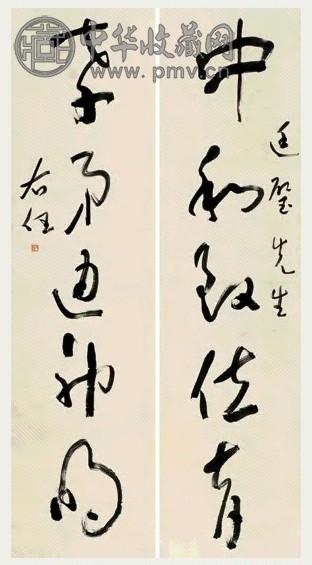 中华收藏网
www.pmv.cn
廷璧先生
中和致位育
孝弟通神明
右任